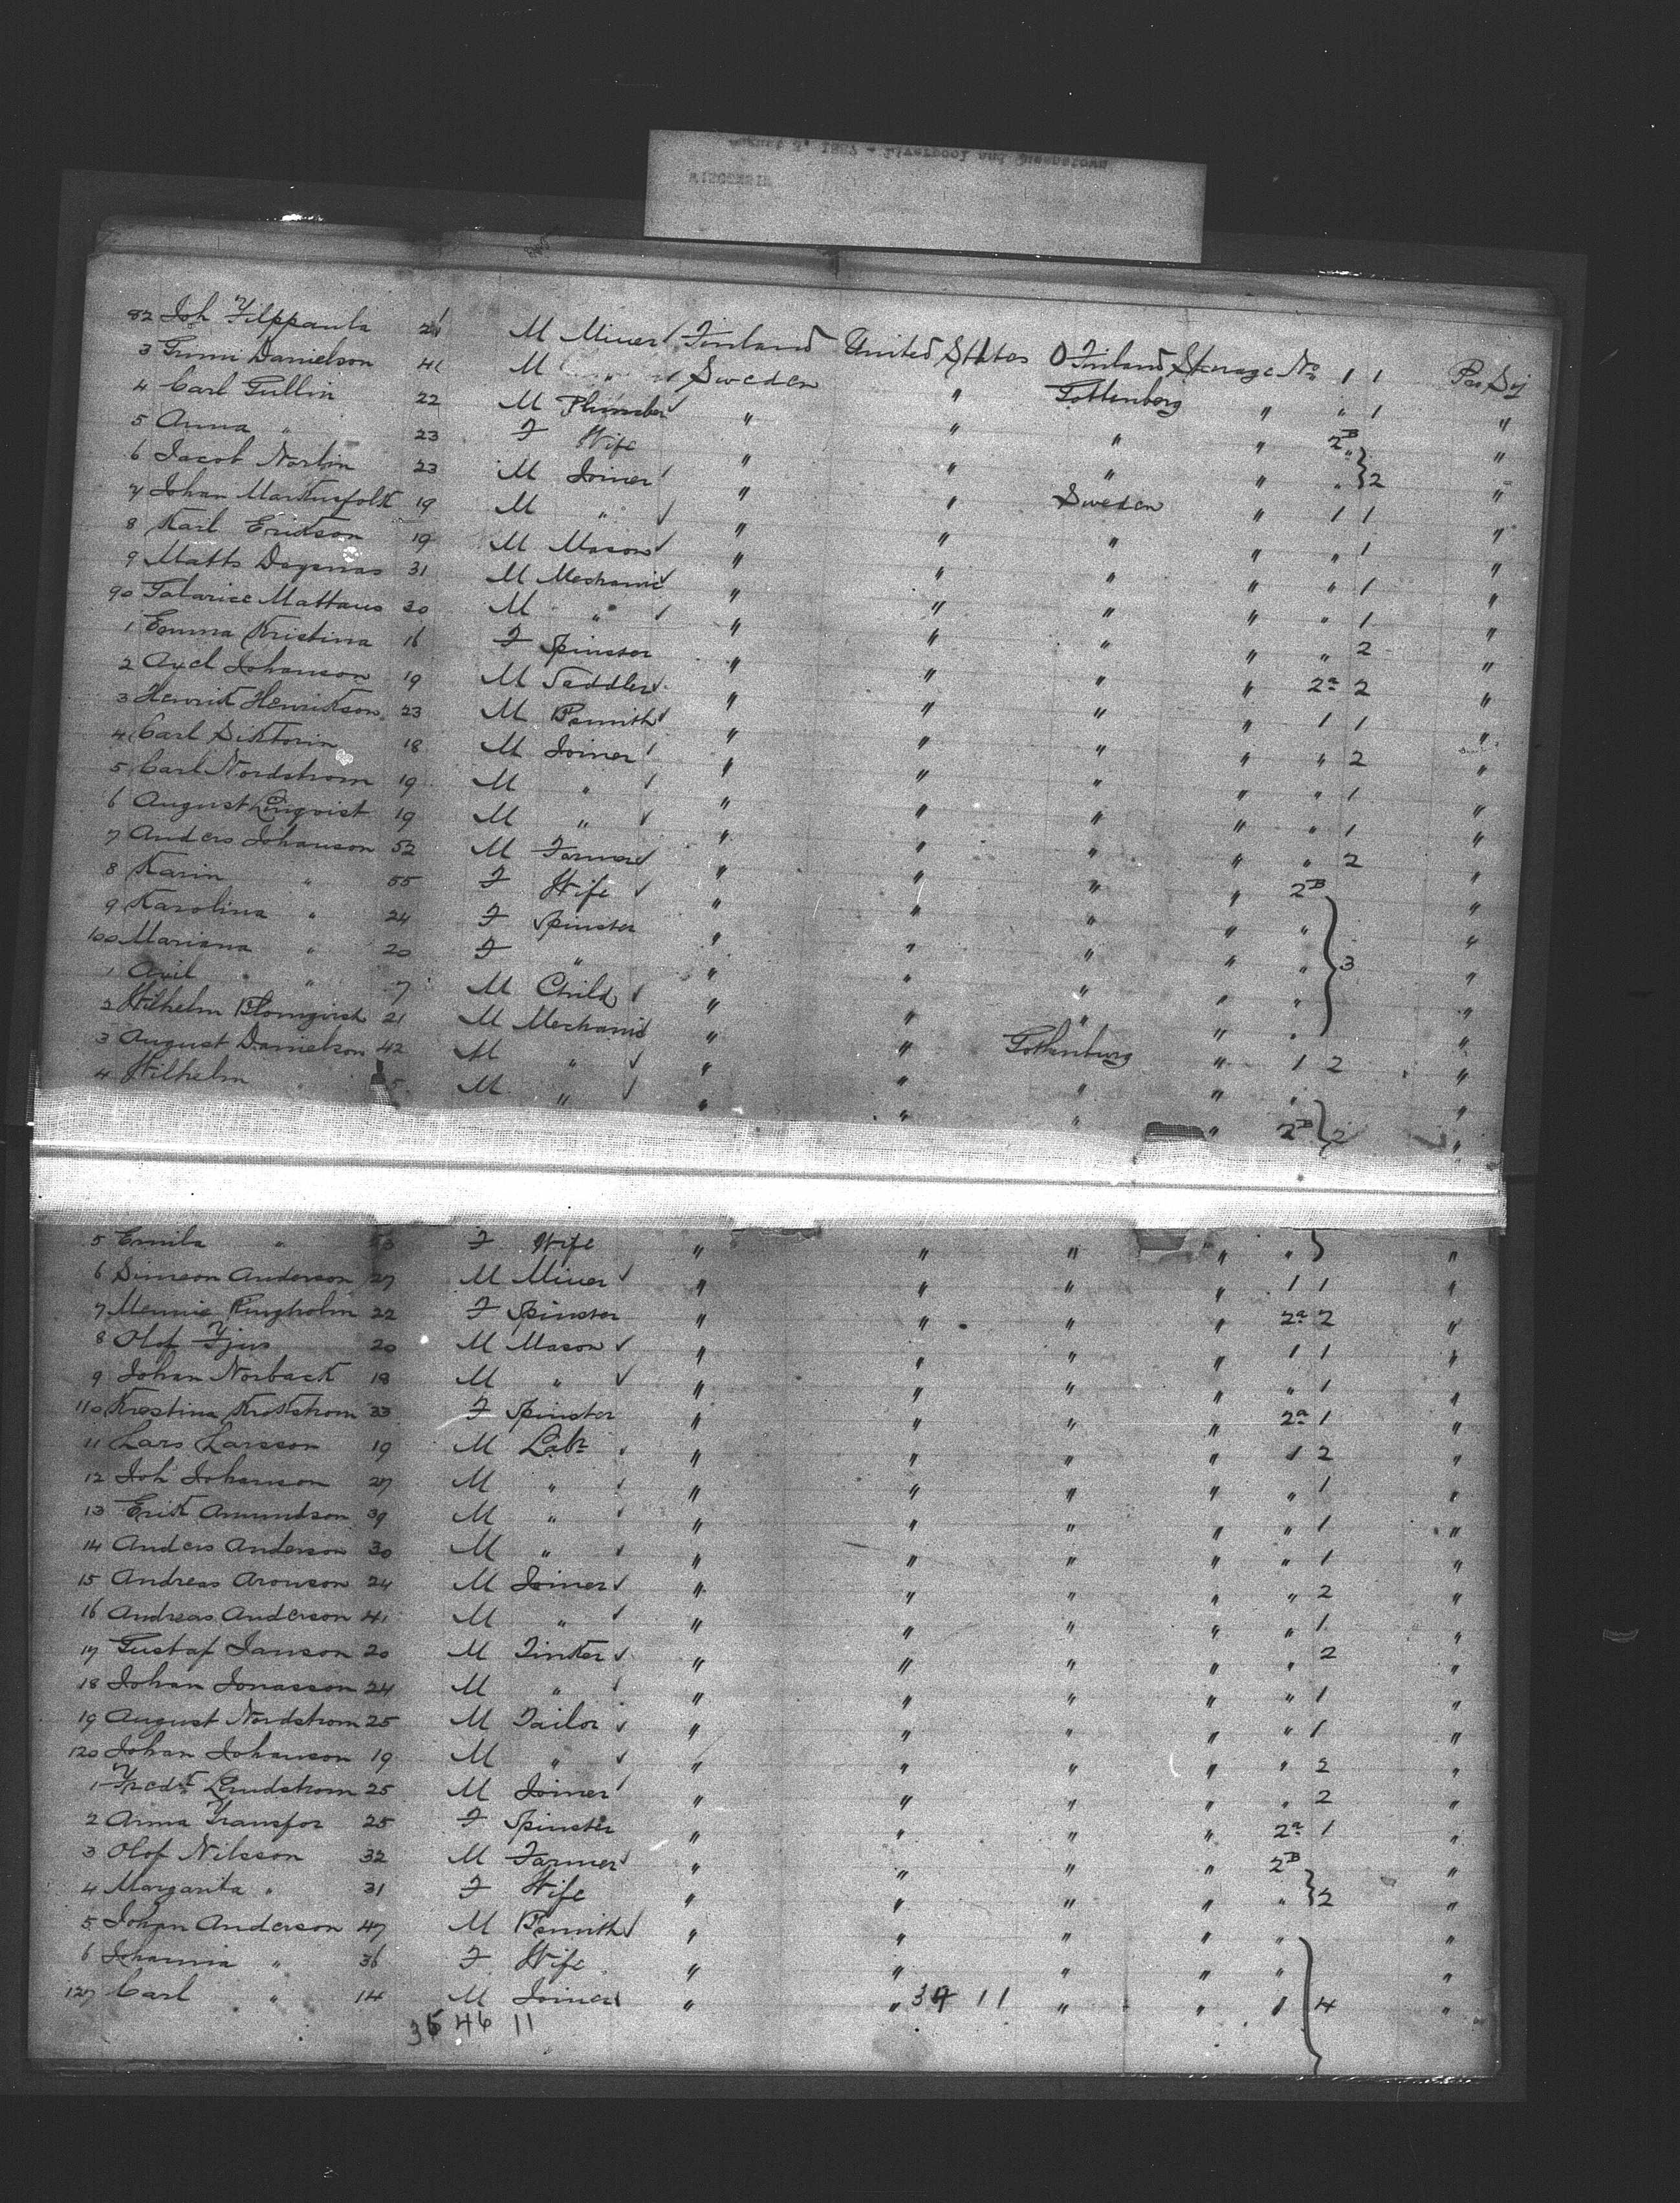 82 Joh Filppaula 21 M Miner Finland United States O Finland Steerage No 1 1 Pas Soj
3 Danielson 41 M " Sweden " Gottenberg " " 1 "
4 Carl Gullin 22 M Plumber " " " " 2B "
5 Anna " 23 F Wife " " " " " } 2 "
6 Jacob Norlin 23 M Joiner " " Sweden " 1 1 "
7 Johan 19 M " " " " " " 1 "
8 Karl Erikson 19 M Mason " " " " " 1 "
9 Matts 31 M Mechanic " " " " " 1 "
90 Mattaus 30 M " " " " " " 2 "
1 Emma Kristina 16 F Spinster " " " " 2a 2 "
2 Axel Johanson 19 M Saddler " " " " 1 1 "
3 Henrik Henrikson 23 M Bsmith " " " " " 2 "
4 Carl Siktorin 18 M Joiner " " " " " 1 "
5 Carl Nordstrom 19 M " " " " " " 1 "
6 August Linqvist 19 M " " " " " " 2 "
7 Anders Johanson 52 M Farmer " " " " 2B "
8 Karin " 55 F Wife " " " " " "
9 Karolina " 24 F Spinster " " " " " } 3 "
100 Mariana " 20 F " " " " " " "
1 " 7 M Child " " " " " "
2 Wilhelm Blomqvist 21 M Mechanic " " Gothenburg " 1 2 "
3 August Danielson 42 M " " " " " " "
4 Wilhelm M " " " " " 2B } 2 "
5 Emila " F Wife " " " " " } "
6 Simeon Anderson 27 M Miner " " " " 1 1 "
7 Mennie Ringholm 22 F Spinster " " " " 2a 2 "
8 Olof Fjus 20 M Mason " " " " 1 1 "
9 Johan Norback 18 M " " " " " " 1 "
110 Krestina Krokstrom 33 F Spinster " " " " 2a 1 "
11 Lars Larsson 19 M Labr " " " " 1 2 "
12 Joh Johanson 27 M " " " " " " 1 "
13 Erik Amundson 39 M " " " " " " 1 "
14 Anders Anderson 30 M " " " " " " 1 "
15 Andreas Aronson 24 M Joiner " " " " " 2 "
16 Andreas Anderson 41 M " " " " " " 1 "
17 Gustaf Janson 20 M Tinker " " " " " 2 "
18 Johan Jonasson 24 M " " " " " " 1 "
19 August Nordstrom 25 M Tailor " " " " " 1 "
120 Johan Johanson 19 M " " " " " " 2 "
1 Fredk Lindstrom 25 M Joiner " " " " " 2 "
2 Anna Fransfor 25 F Spinster " " " " 2a 1 "
3 Olof Nilsson 32 M Farmer " " " " 2B "
4 Margarita " 31 F Wife " " " " " } 2 "
5 Johan Anderson 47 M Bsmith " " " " " "
6 Johanna " 36 F Wife " " " " " "
127 Carl " 14 M Joiner " " 39 11 " " 1 } 4 "
35 46 11